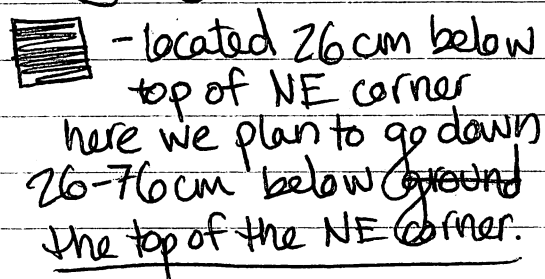 - located 26 cm below
top of NE corner
here we plan to go down
26-76 cm below ground
the top of the NE corner.